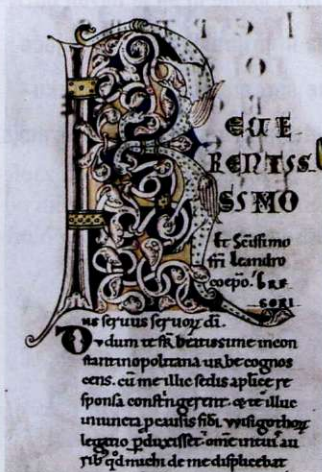 REUE
RENTISS
SIMO
Et Sc̄issimo
fr̄i leandro
coep̄o. GRE
GORI
us seruus seruoꝝ dī.
Dvdum te fr̄ beatissime incon
stantinopolitana urbe cognos
cens. cū me illuc sedis aplicę re
sponsa constringerent. & te illuc
iniuncta ꝓ causis fidi. uuisigothoꝝ
legatio ꝑduxisset. om̄e intuis au
rib; qd̄ michi de me displicebat